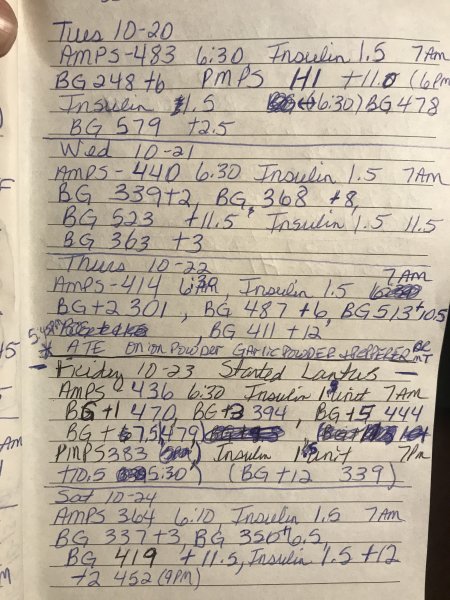 Tues 10-20
AMPS-483 6:30, Insulin 1.5 7AM
BG 248 +6 PMPS 141 +11.0 (6pm
Insulin 1.5 6:30) BG 478
BG 579 +2.5
Wed 10-21
AMPS-440 6:30 Insulin 1.5 7AM
BG 339+2, BG 368 +8,
BG 523 +11.5, Insulin 1.5 11.5
BG 363 +3
Thurs 10-22 7AM
AMPS-414 Insulin 1.5
BG+2 301, BG 487 +6, BG 513+10.5
BG 411 +12
* ATE ONION POWDER GARLIC POWDER +PEPPER
- Friday 10-23 Started Lantus -
AMPS-436 6:30 Insulin 1 unit 7AM
BG+1 470, BG+3 394, BG+5 444
BG +7.5 (479)
PMPS 383 Insulin 1 unit 7pm
+10.5 5:30) (BG+12 339)
Sat 10-24
AMPS 364 6:10, Insulin 1.5 7AM
BG 337+3, BG 350+6.5,
BG 419 +11.5, Insulin 1.5 +12
+2 452 (9PM)